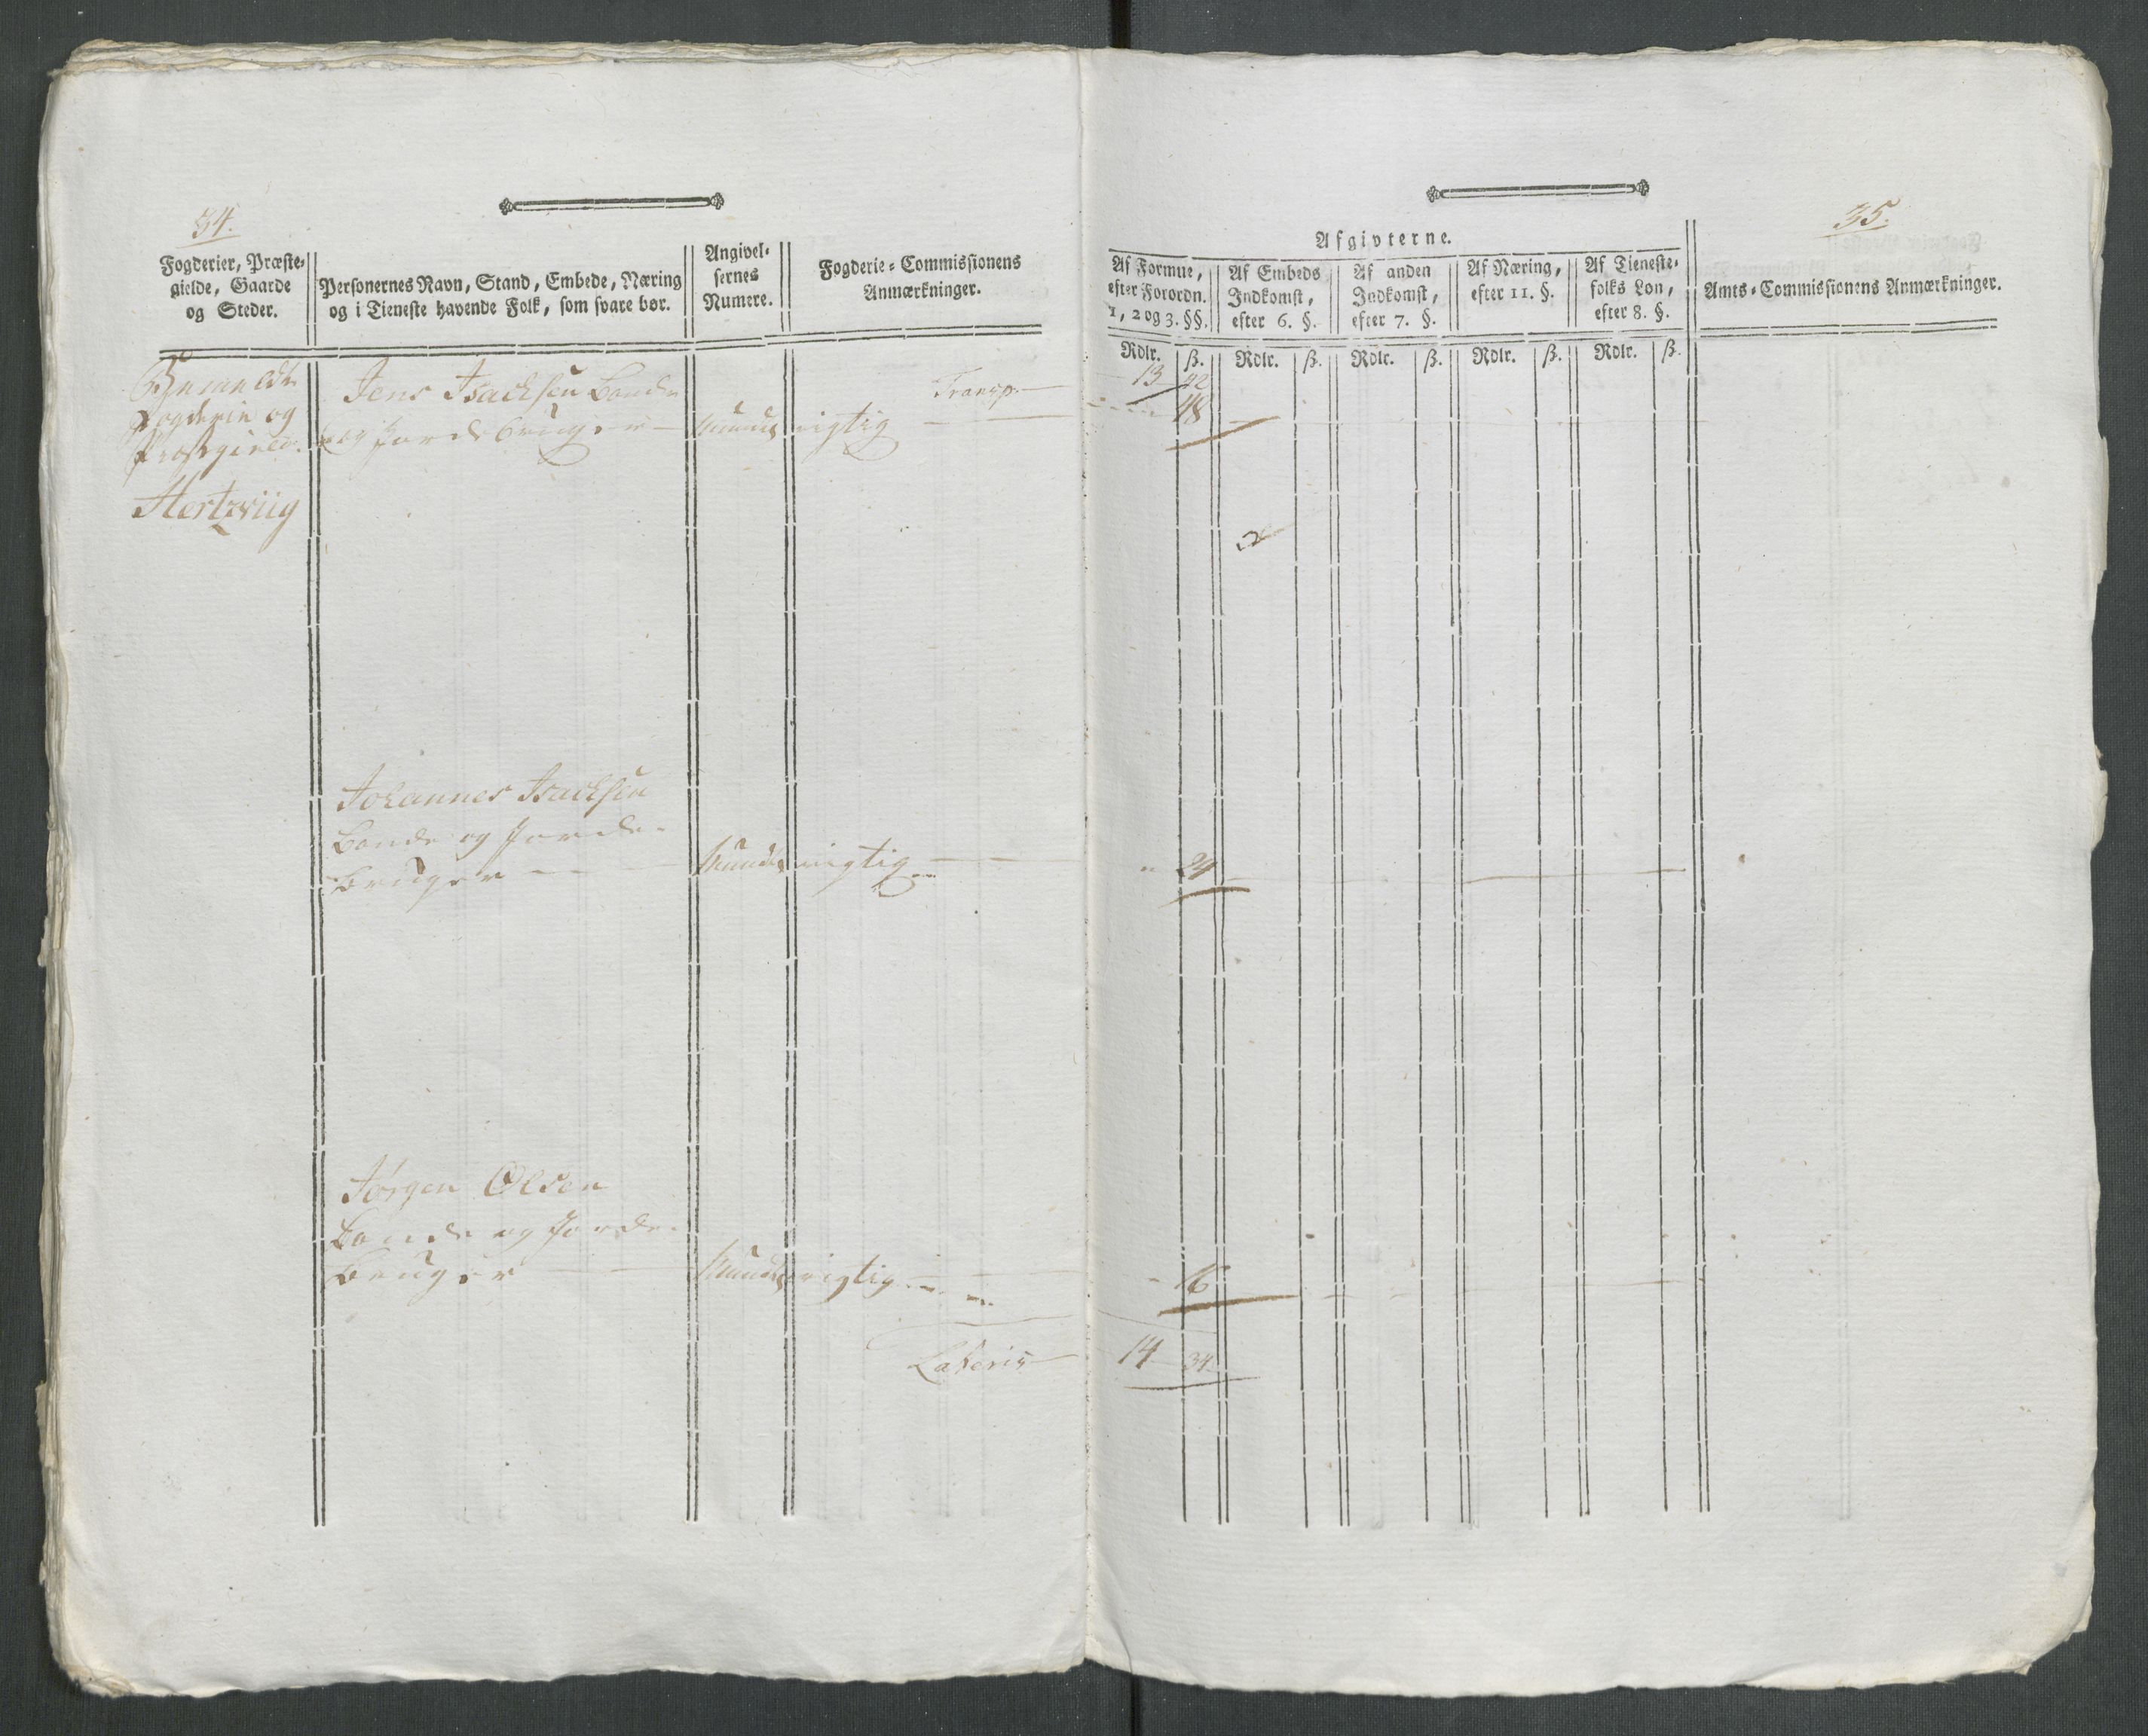 34.
Fogderier, Præste-
gielde, Gaarde
og Steder.
Personernes Navn, Stand, Embede, Næring
og i Tieneste havende Folk, som svare bør.
Angivel-
sernes
Numere.
Fogderie-Commissionens
Anmærkninger.
Fogderie og
Præstgield.
Hertzviig
Transp.
Jens Isachsen Bonde
og Jordebruger mundtl rigtig
Johannes Isachsen
Bonde og Jorde-
bruger mundtl rigtig
Jørgen Olsen
Bonde og Jorde-
bruger mundtl rigtig
Lateris
35.
Afgivterne.
Af Formue,
efter Forordn.
1, 2 og 3. §§.
Af Embeds
Indkomst,
efter 6. §.
Af anden
Indkomst,
efter 7. §.
Af Næring,
efter 11. §.
Af Tieneste-
folks Løn,
efter 8. §.
Amts-Commissionens Anmærkninger.
Rdlr. ß. Rdlr. ß. Rdlr. ß. Rdlr. ß. Rdlr. ß.
13 42
48
24
16
14 34